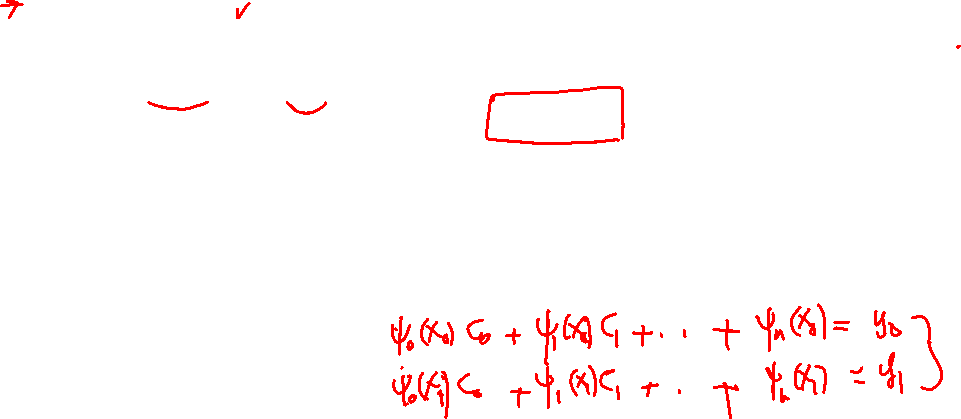 ψ₀(x₀) c₀ + ψ₁(x₀) c₁ + . . + ψₙ(x₀) = y₀
ψ₀(x₁) c₀ + ψ₁(x₁) c₁ + . . + ψₙ(x₁) = y₁